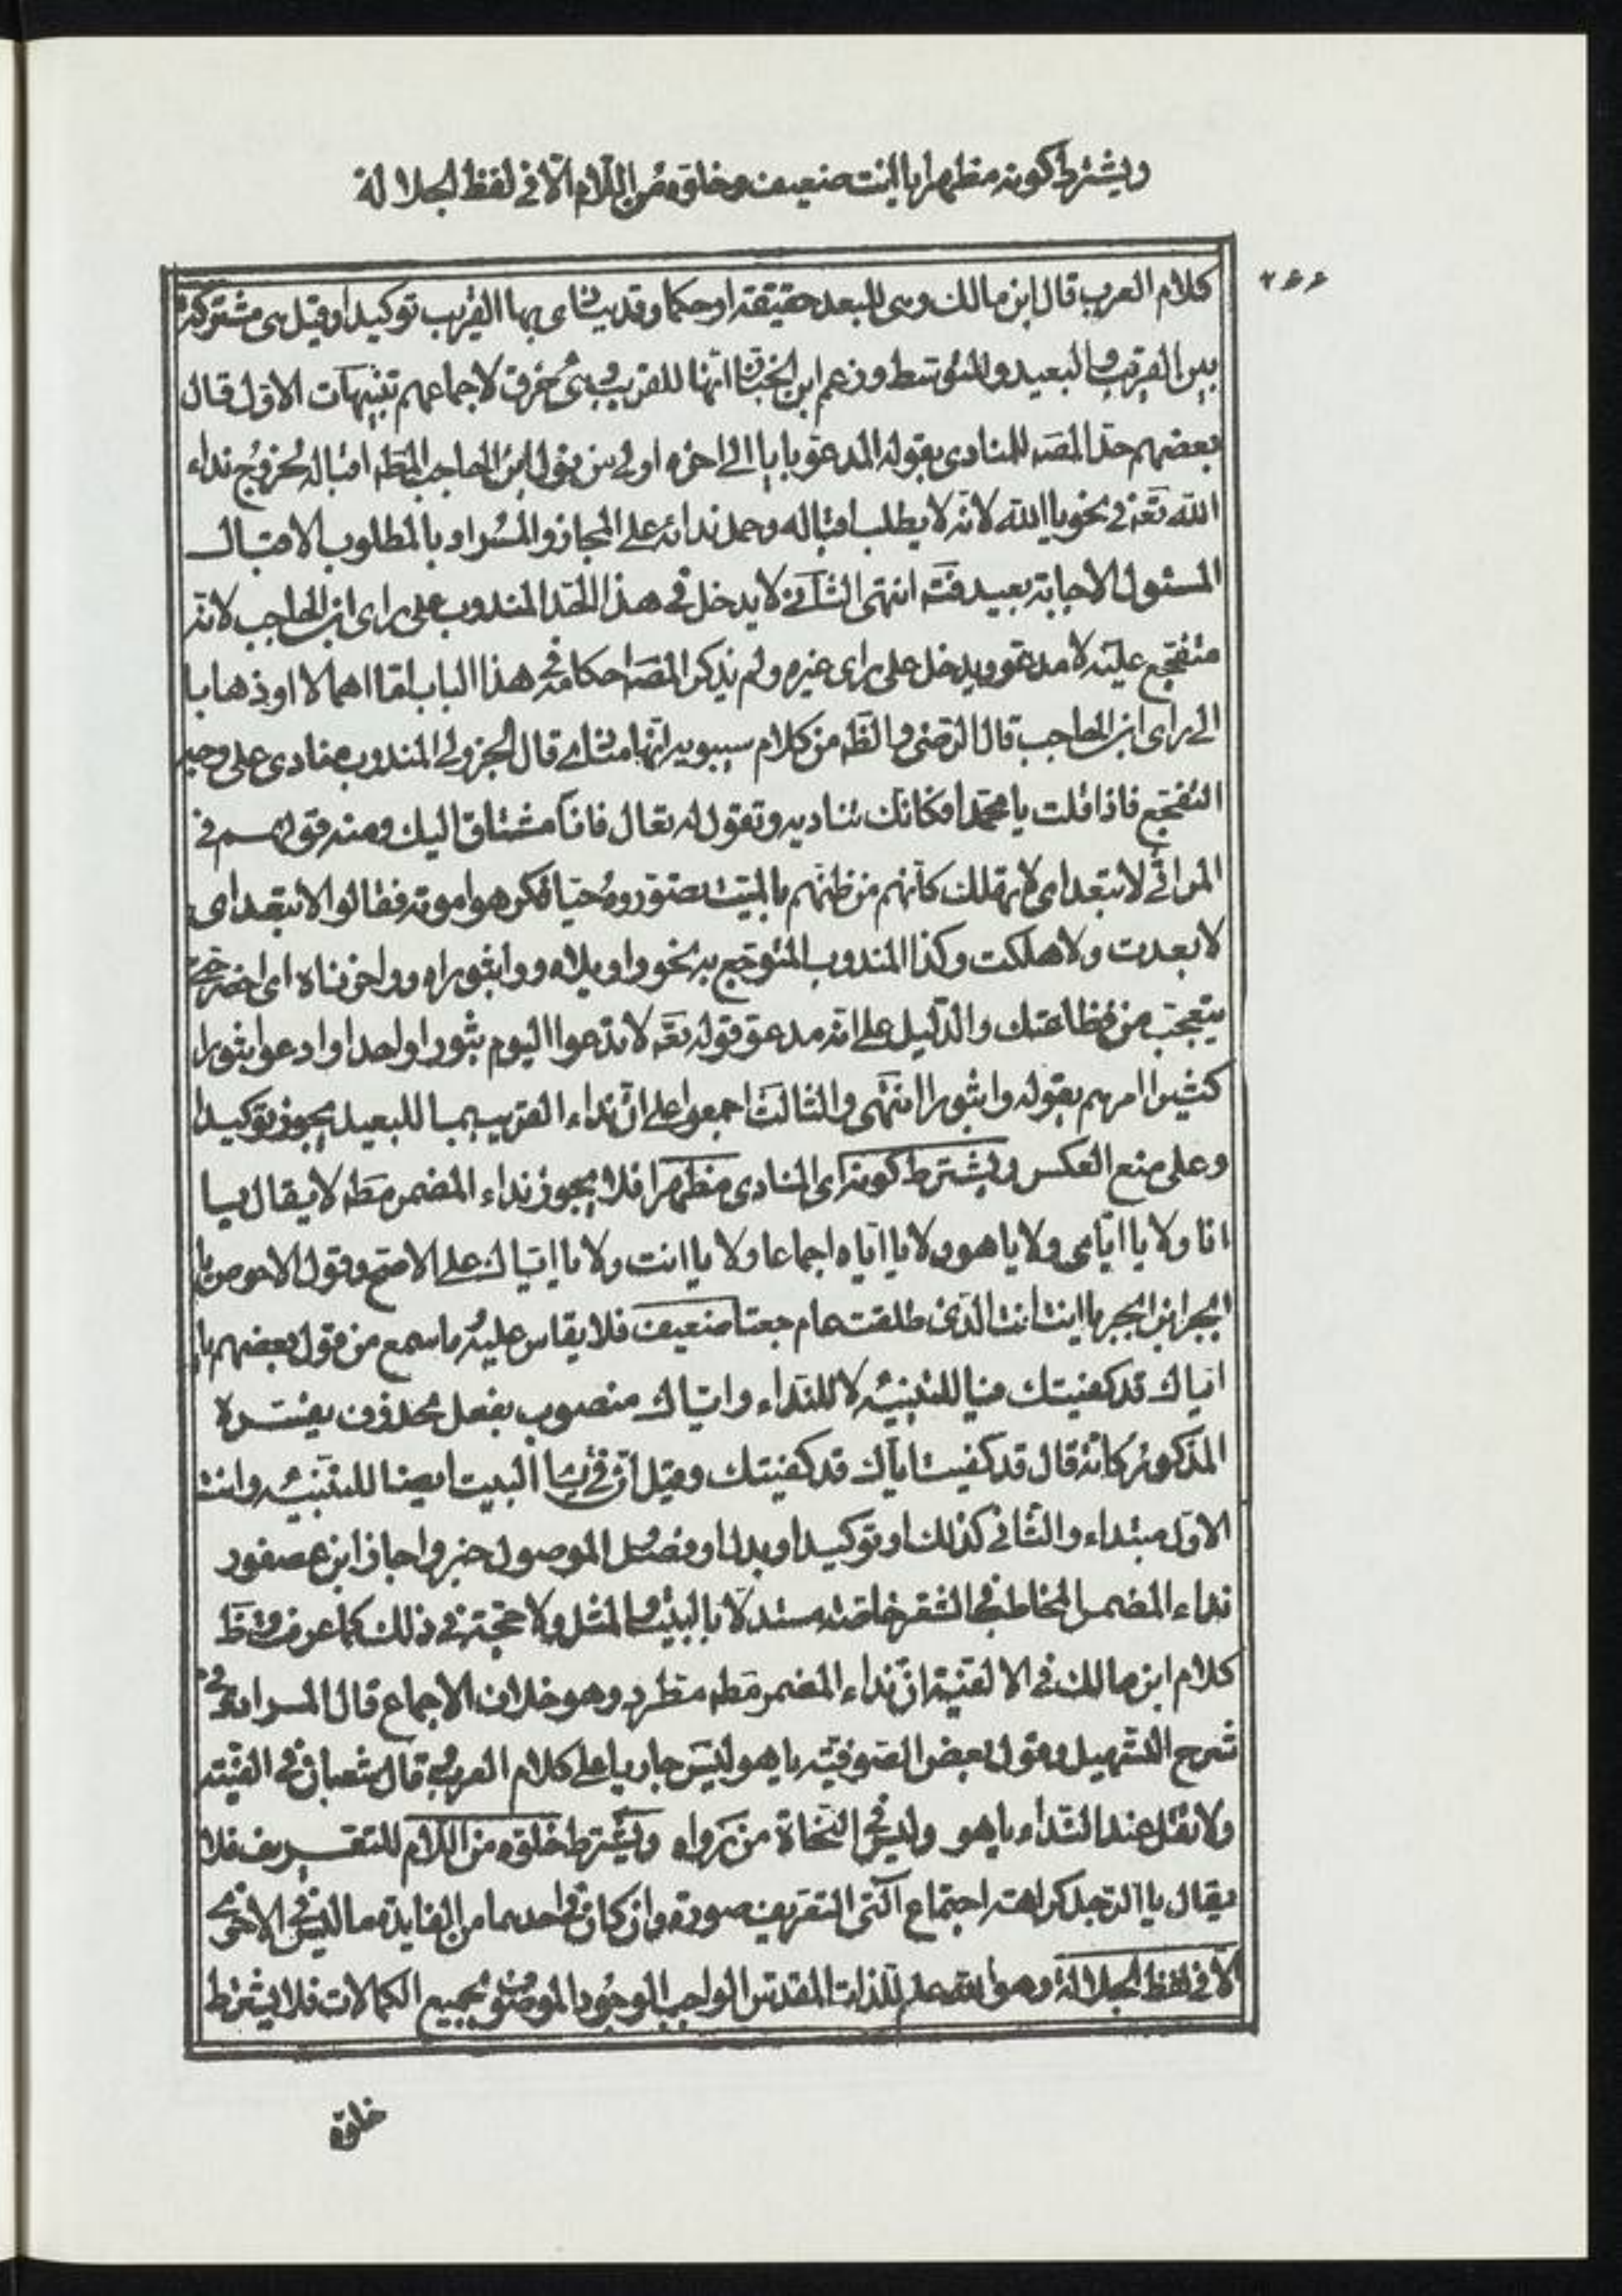 ويشترط كونه مظهرا يا انت ضعيف وخلوّه من اللّام الّا في لفظ الجلالة
٢٤٤
كلام العرب قال ابن مالك وهى للبعد حقيقة او حكما وقد ينادى بها القريب توكيدا وقيل هى مشتركة
بين القريب والبعيد والمتوسّط وزعم ابن الخبّاز انّها للقريب وهى خرق لاجماعهم تنبيهات الاوّل قال
بعضهم حدّ المصه للمنادى بقوله المدعوّ بايا الى اخره اولى من قول ابن الحاجب المط اقباله لخروج نداء
الله تعه في نحو يا الله لانّه لا يطلب اقباله وحمل ندائه على المجاز والمراد بالمطلوب الاقبال
المسئول الاجابة بعيد فتّه انتهى الثانى لا يدخل في هذا الحدّ المندوب على راى ابن الحاجب لانّه
متفجّع عليه لا مدعوّ ويدخل على راى غيره ولم يذكر المصه احكامه في هذا الباب امّا اهمالا او ذهابا
الى راى ابن الحاجب قال الرّضى والظّ من كلام سيبويه انّها منادى قال الجزولى المندوب منادى على وجه
التفجّع فاذا قلت يا محمّدا فكانّك تناديه وتقول له تعال فانا مشتاق اليك ومنه قولهم في
المراثى لا تبعد اى لا تهلك كانّهم من ظنّهم بالميّت تصوّروه حيّا فكرهوا موته فقالوا لا تبعد اى
لا بعدت ولا هلكت وكذا المندوب المتوجّع به نحو واويلاه وواثبوراه وواحزناه اى احضر حتّى
يتعجّب من فظاعتك والدّليل على انّه مدعوّ قوله تعه لا تدعوا اليوم ثبورا واحدا وادعوا ثبورا
كثيرا امرهم بقوله واثبورا انتهى والثالث اجمعوا على انّ نداء القريب بما للبعيد يجوز توكيدا
وعلى منع العكس ويشترط كونه اى المنادى مظهرا فلا يجوز نداء المضمر مطه لا يقال يا
انا ولا يا ايّاى ولا يا هو ولا يا ايّاه اجماعا ولا يا انت ولا يا ايّاك على الاصحّ وقول الاحوص يا
ابجر ابن ابجر يا انت انت الذى طلقت عام جعتا ضعيف فلا يقاس عليه ما سمع من قول بعضهم يا
ايّاك قد كفيتك فيا للتنبيه لا للنّداء وايّاك منصوب بفعل محذوف يفسّره
المذكور كانّه قال قد كفيت ايّاك قد كفيتك وقيل انّ في يا البيت ايضا للتنبيه وانت
الاوّل مبتداء والثانى كذلك او توكيد او بدل او فصل الموصول خبر واجاز ابن عصفور
نداء المضمر المخاطب في الشعر خاصّة مستدلّا بالبيت والمثل ولا حجّة في ذلك كما عرفت وظّ
كلام ابن مالك في الالفيّة انّ نداء المضمر مطه مطّرد وهو خلاف الاجماع قال المرادى في
شرح التسهيل وقول بعض الصوفيّة يا هو ليس جاريا على كلام العرب قال شعبان في الفيّته
ولا تقل عند النّداء يا هو وليس في النّحاة من رواه ويشترط خلوّه من اللّام للتعريف فلا
يقال يا الرّجل كراهة اجتماع آلتى التعريف صورة وان كان في احدهما من الفايدة ما ليس في الاخرى
الّا في لفظ الجلالة وهو الله علم للذات المقدّس الواجب الوجود الموصوف بجميع الكمالات فلا يشترط
خلوّه